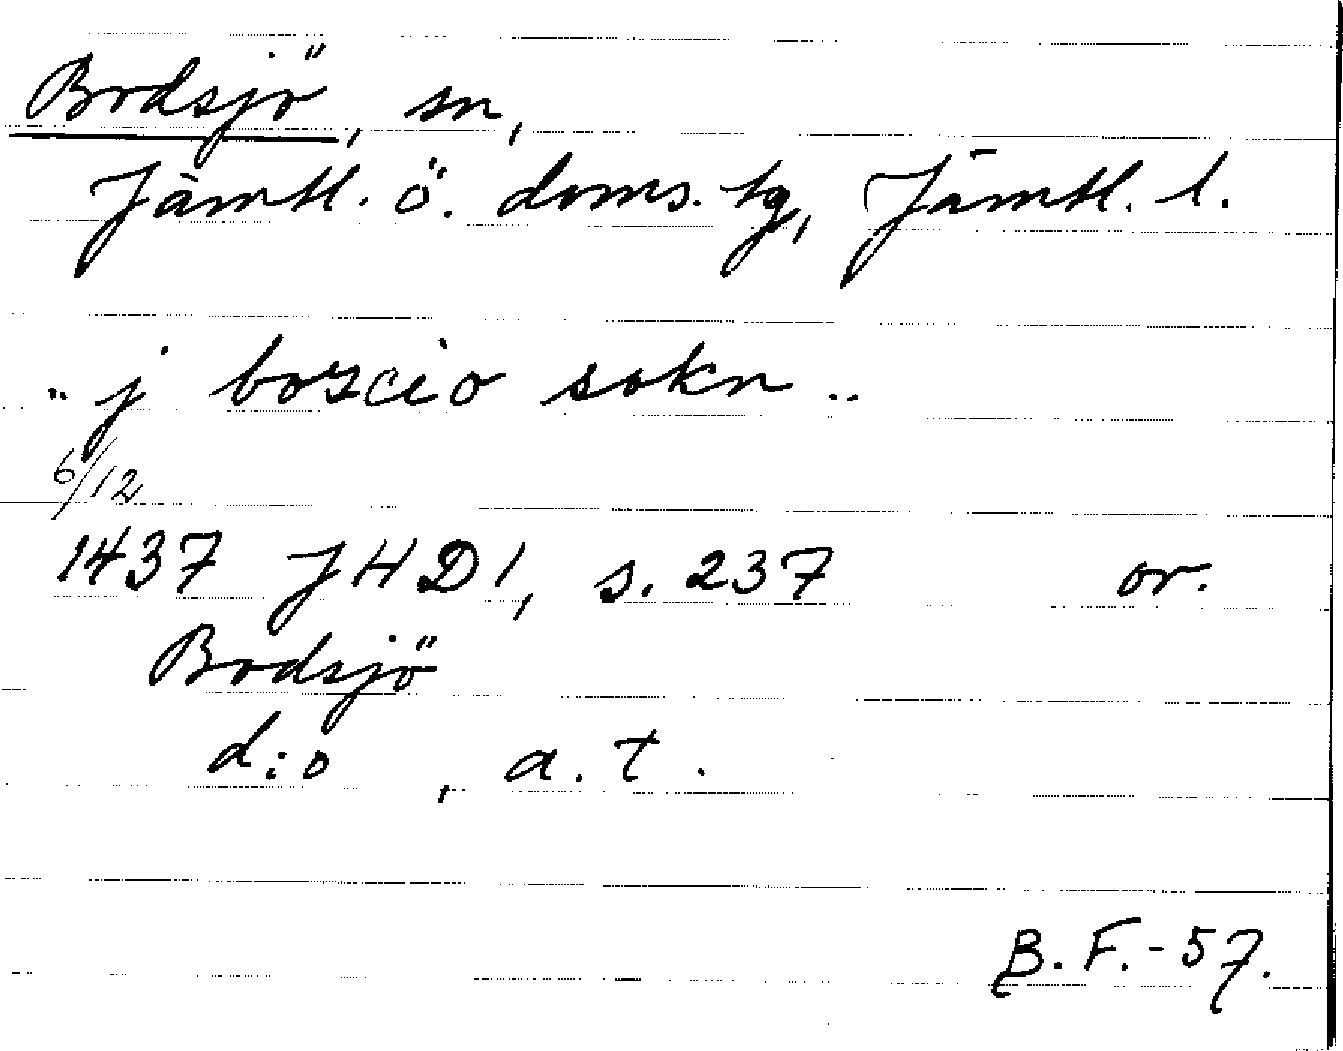 Bodsjö, sn,
Jämtl. ö. doms. tg, Jämtl. l.
.. j bozcio sokn ..
6/12
1437 JHD 1, s. 237 or.
Bodsjö
d:o , a. t.
B. F. - 57.